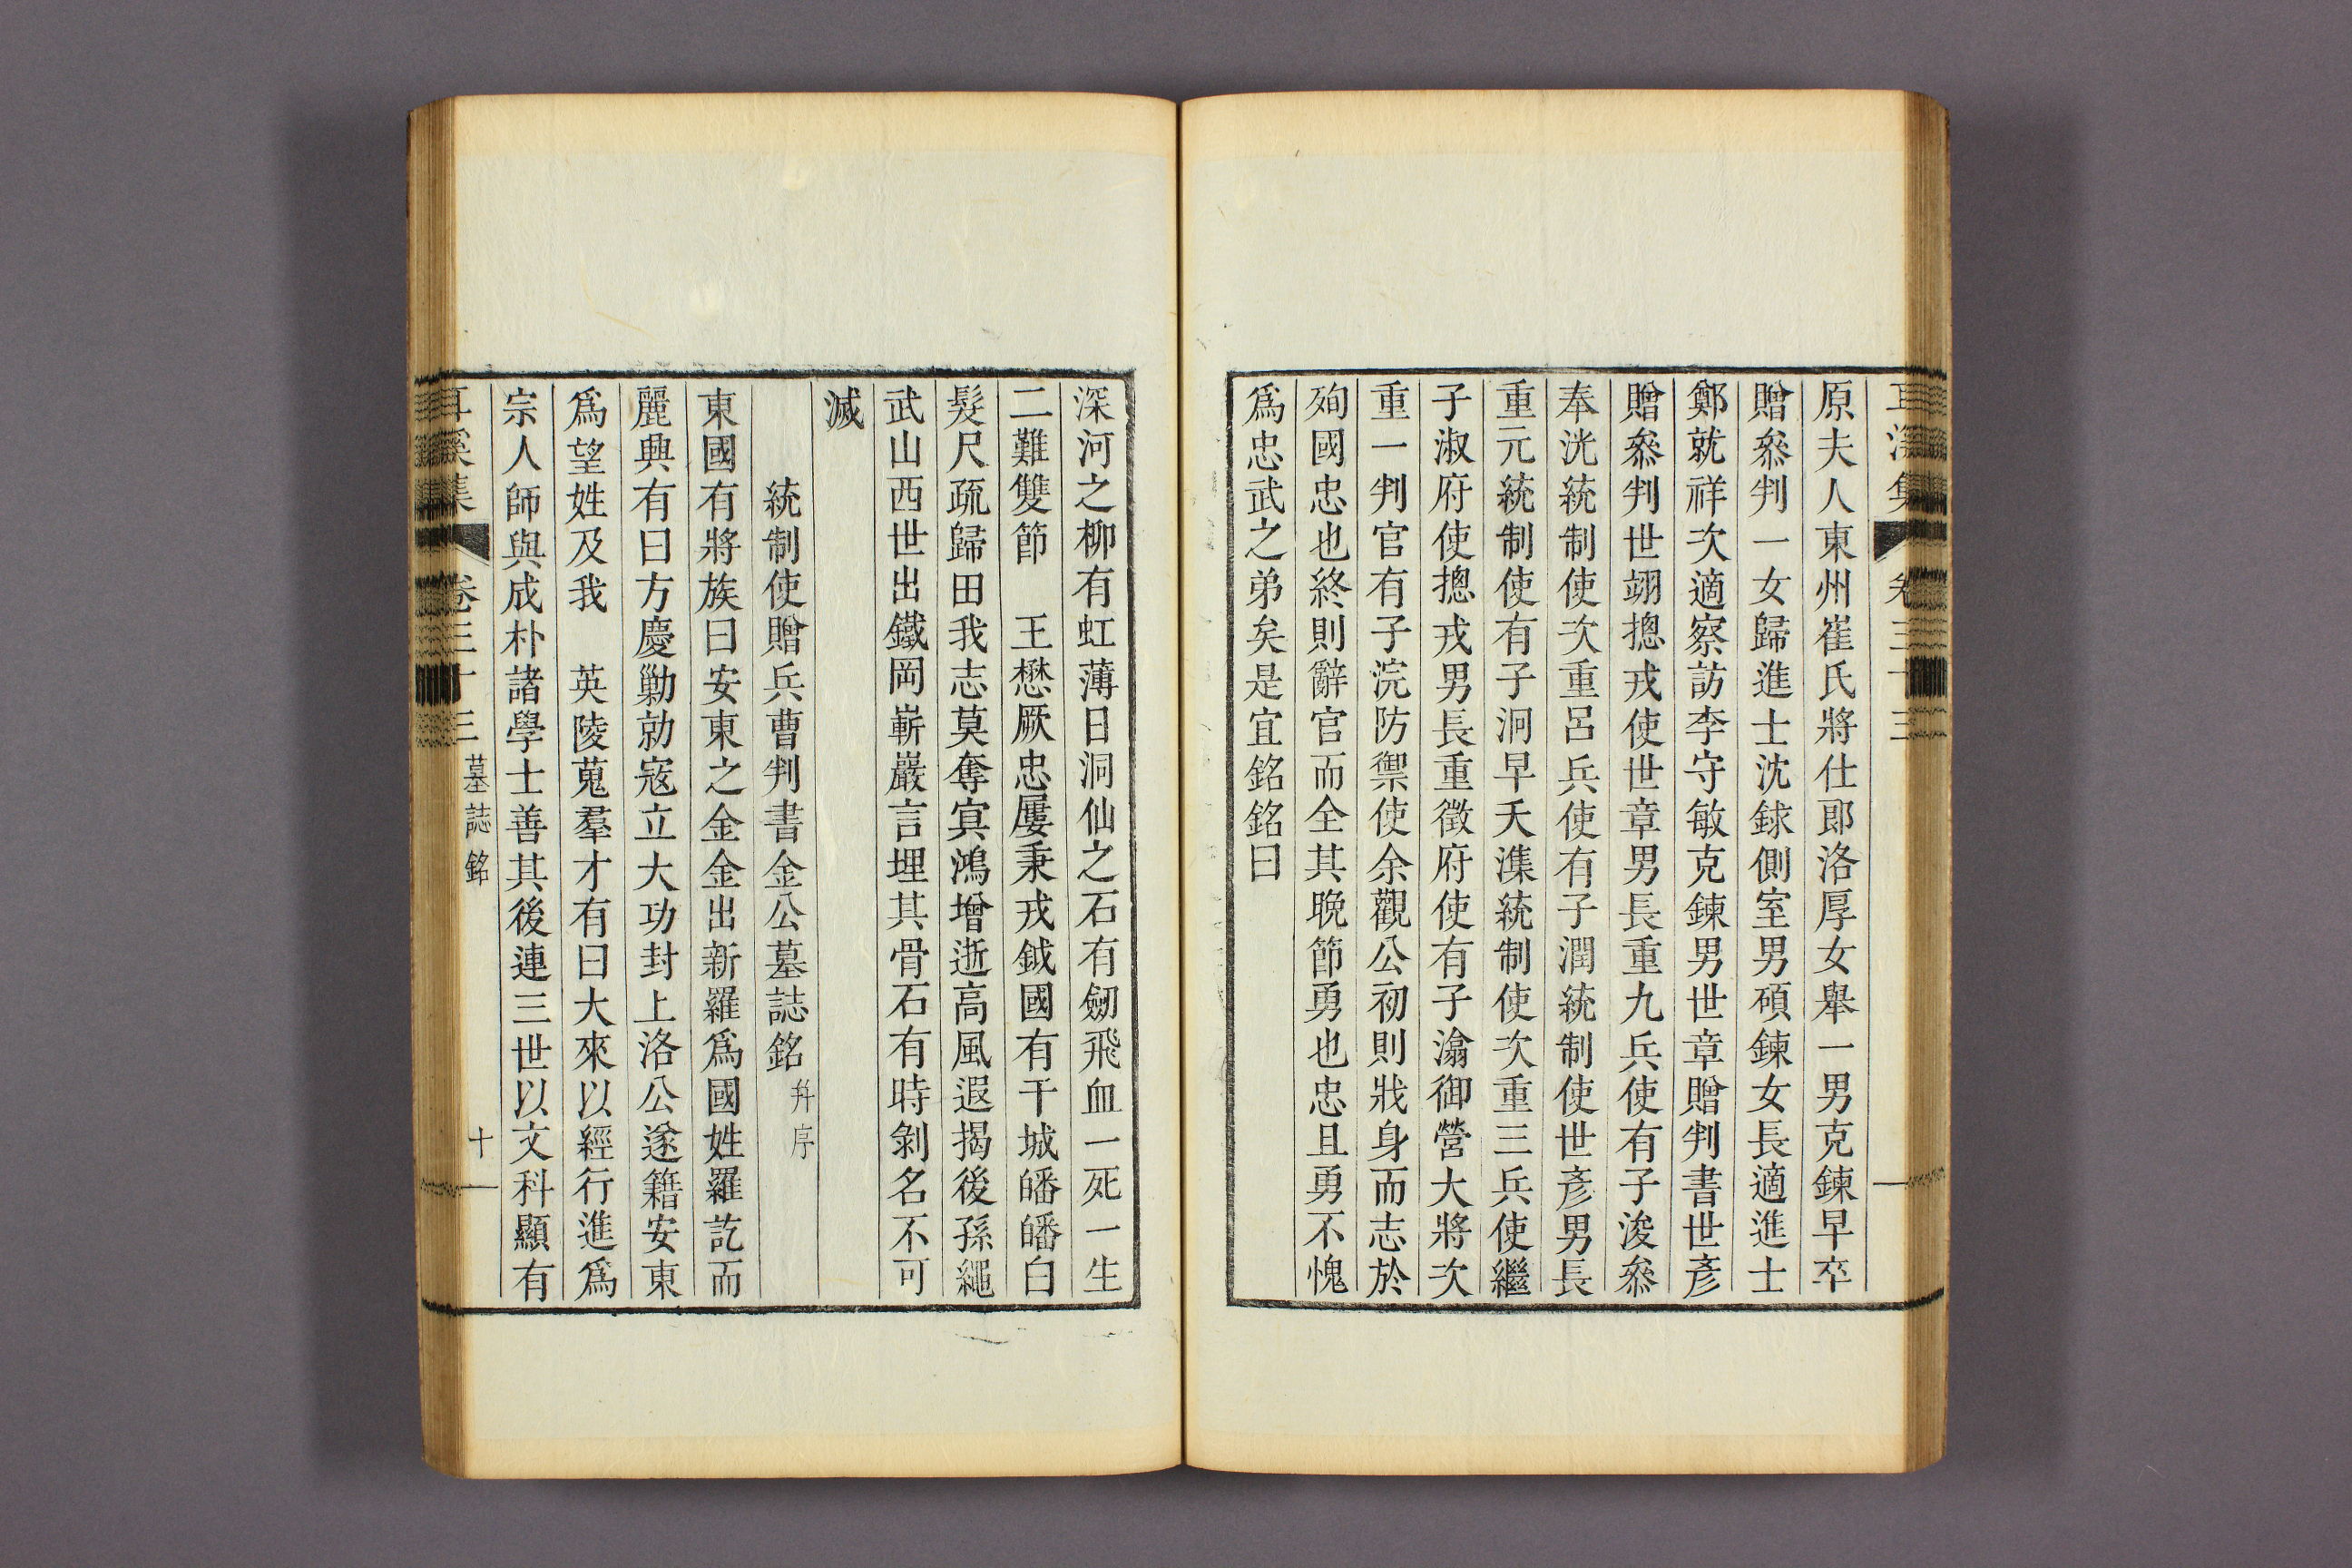 原夫人東州崔氏將仕郎洛厚女舉一男克鍊早卒
贈叅判一女歸進士沈銶側室男碩鍊女長適進士
鄭就祥次適察訪李守敏克鍊男世章贈判書世彥
贈叅判世翊摠戎使世章男長重九兵使有子浚叅
奉洸統制使次重呂兵使有子潤統制使世彥男長
重元統制使有子泂早夭潗統制使次重三兵使繼
子淑府使摠戎男長重徵府使有子潝御營大將次
重一判官有子浣防禦使余觀公初則戕身而志於
殉國忠也終則辭官而全其晩節勇也忠且勇不愧
爲忠武之弟矣是宜銘銘曰
深河之柳有虹薄日洞仙之石有劒飛血一死一生
二難雙節　王懋厥忠屢秉戎鉞國有干城皤皤白
髮尺疏歸田我志莫奪冥鴻增逝高風遐揭後孫繩
武山西世出鐵岡嶄巖言埋其骨石有時剝名不可
滅
統制使贈兵曹判書金公墓誌銘幷序
東國有將族曰安東之金金出新羅爲國姓羅訖而
麗興有曰方慶勦勍寇立大功封上洛公遂籍安東
爲望姓及我　英陵蒐羣才有曰大來以經行進爲
宗人師與成朴諸學士善其後連三世以文科顯有
耳溪集　卷三十三　墓誌銘　十一